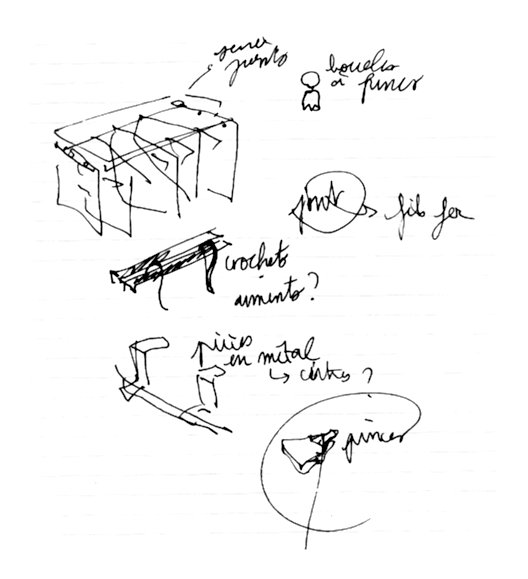 serre
joints
boucles
à pinces
pont → fils fer
crochets
aimants ?
pièces
en métal
↳ cintres ?
pinces